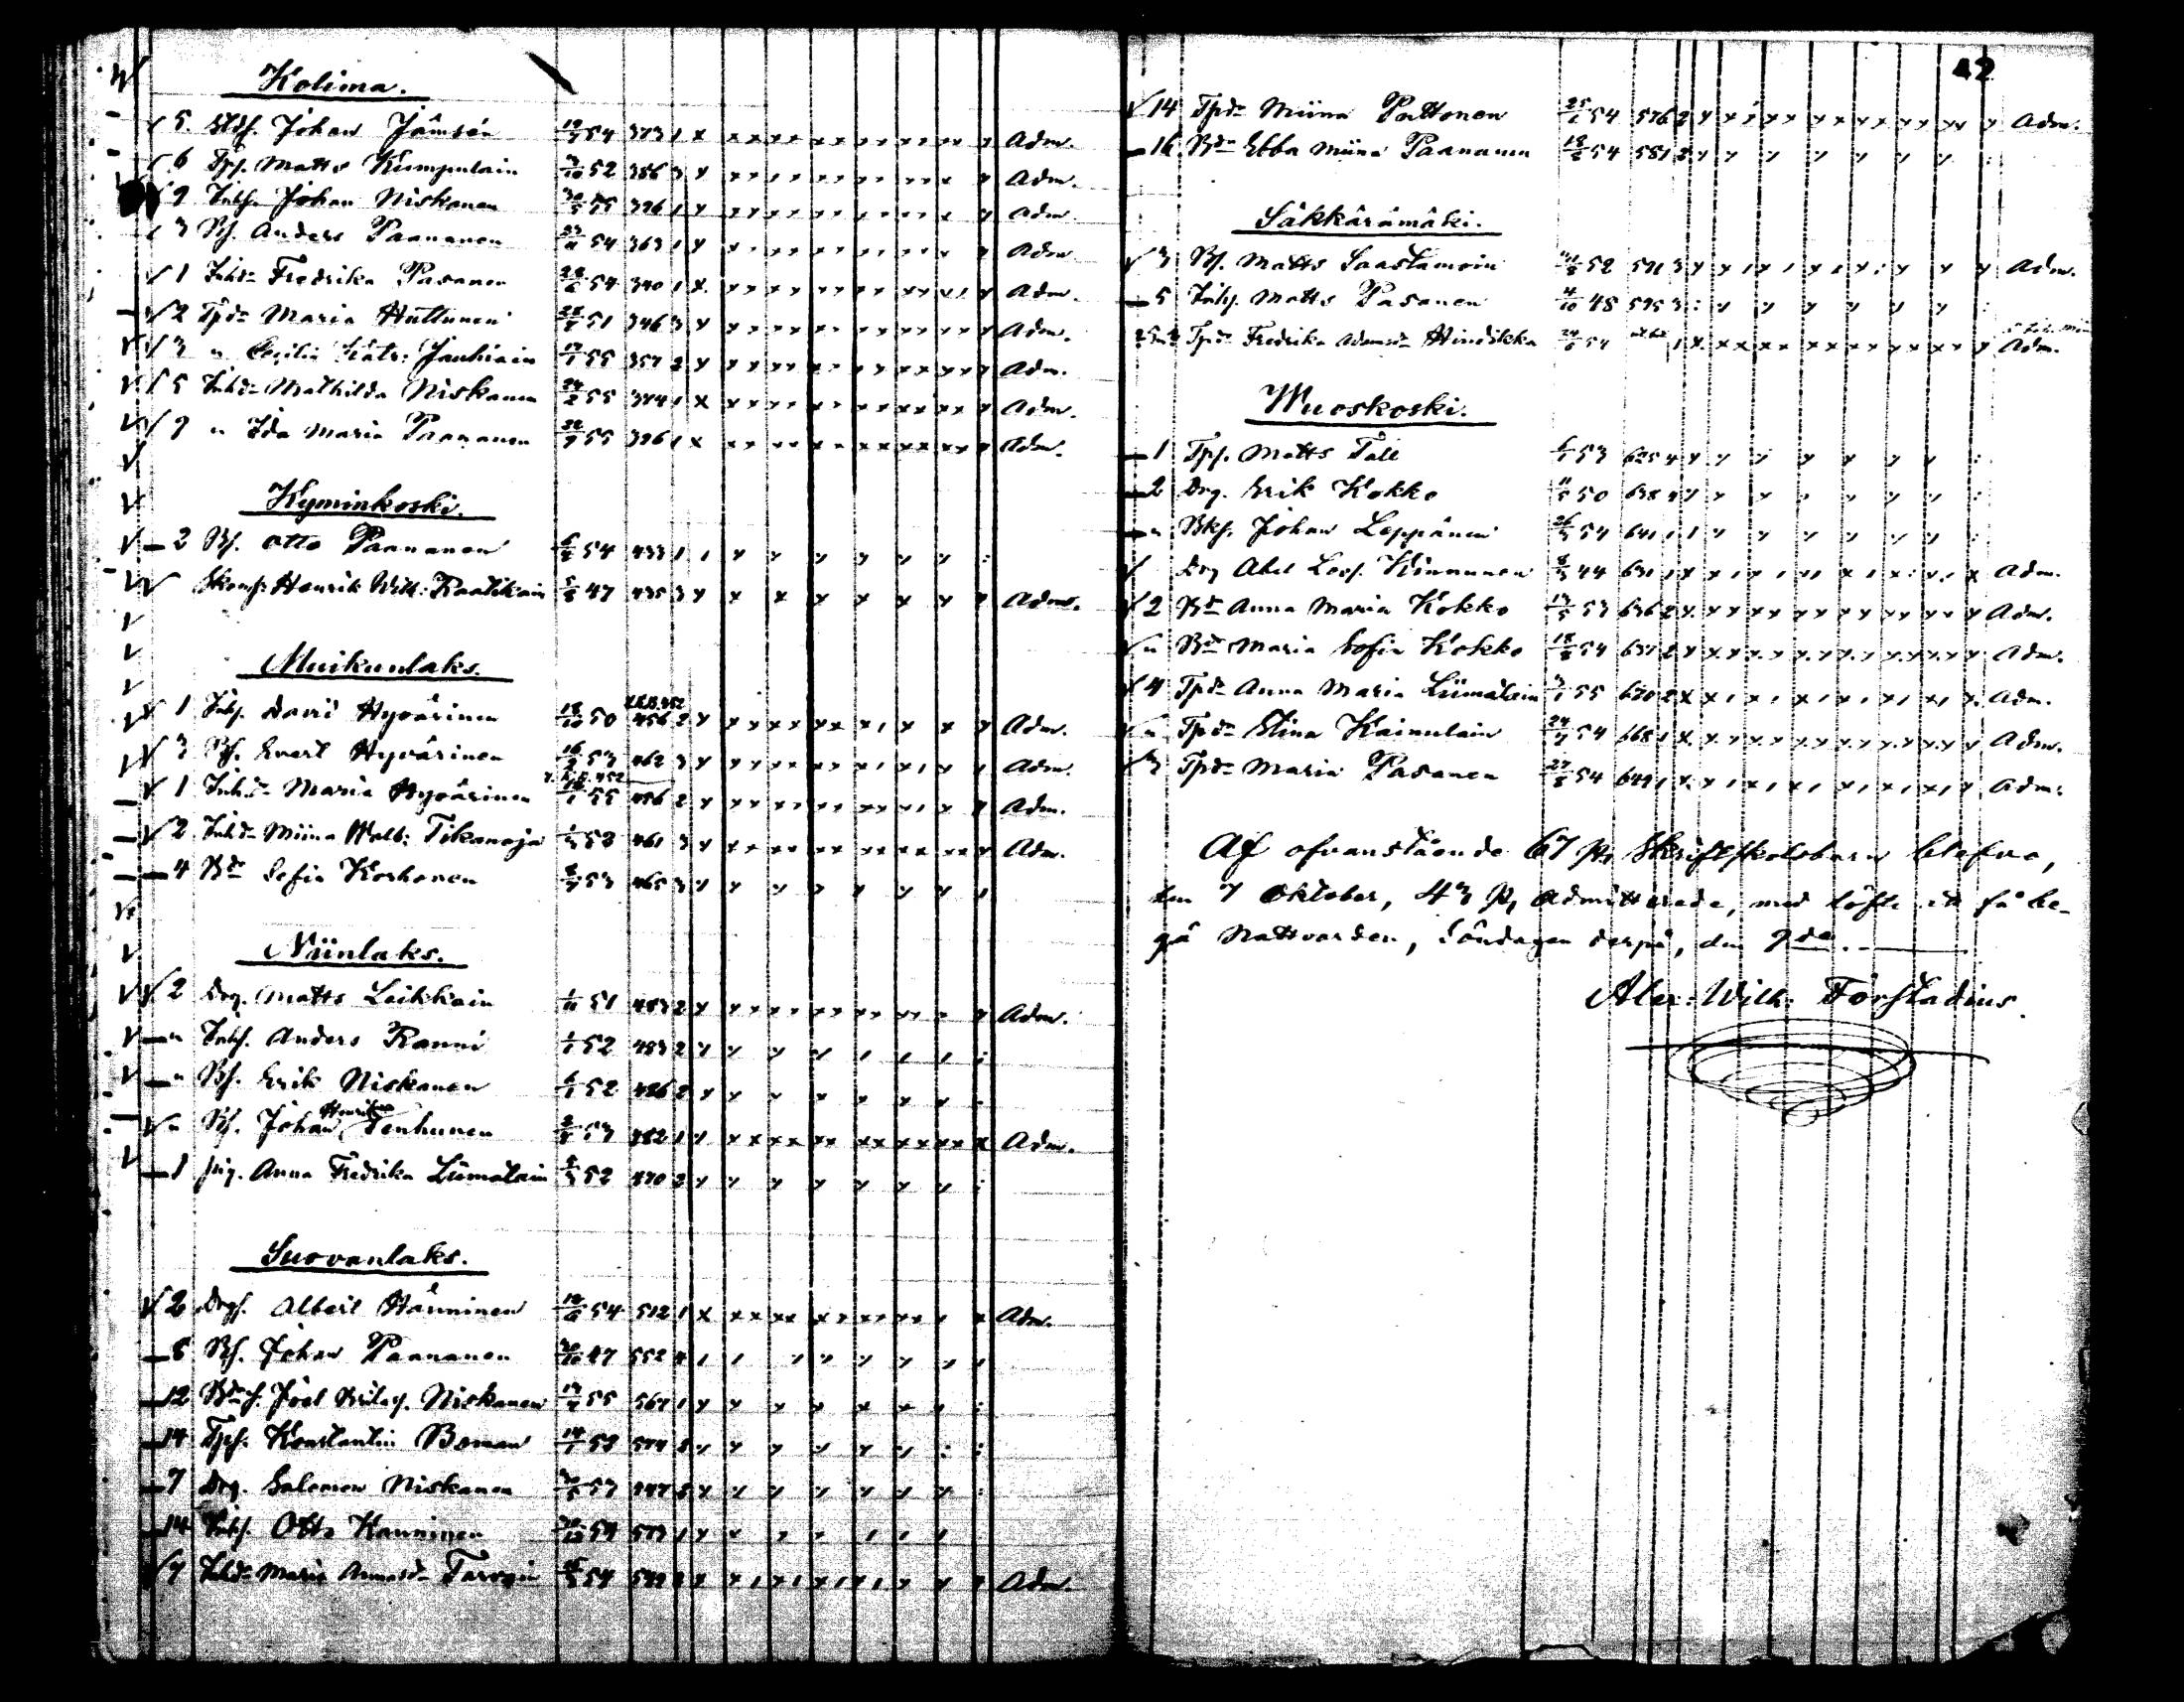 Kolima.
5. Johan Jämsén 54 373 1 Adm.
6 Tps. Matts Kumpulain 52 386 3 Adm.
9 Inhs. Johan Niskanen 55 396 1 Adm
3 Bs. Anders Paananen 54 363 1 Adm
1 Inhdr Fredrika Pasanen 54 340 1 Adm.
2 Tpdr Maria Huttunen 51 346 3 Adm.
3 " Cecilia Jauhiain 55 357 2 Adm.
5 Inhdr Mathilda Niskanen 55 1 Adm.
9 " Ida Maria Paananen 55 396 1 Adm.
Kyminkoski.
2 Bs. Otto Paananen 54 433 1
Henrik Wilh: Raatikain 47 435 3 Adm.
Muikunlaks.
1 Inhs. David Hyvärinen 50 456 2 Adm.
3 Bs. Evert Hyvärinen 53 462 3 Adm.
1 Inhdr Maria Hyvärinen 55 456 2 Adm.
2 Inhdr Miina Walb: Tikanoja 53 461 3 Adm.
4 Bdr Sofia Korhonen 53 465 3
Niinlaks.
2 Drg. Matts Laikkain 51 483 2 Adm.
" Inhs. Anders Ranni 52 483 2
" Bs. Erik Niskanen 52 486 2
Henrik
" Bs. Johan Tenhunen 53 482 1 Adm.
1 Pig. Anna Fredrika Liimatain 52 470 2
Suovanlaks.
2 Drgs. Albert Hänninen 54 512 1 Adm.
8 Bs. Johan Paananen 47 552 4
12 Joel Niskanen 55 567 1
14 Tps. Konstantin Boman 53 574
7 Drg. Salomon Niskanen 53
14 Inhs. Otto Hänninen 54 573 1
9 Inhdr Maria Annasdr Tarvain 54 549 Adm.
42
14 Tpdr Miina Puttonen 54 576 2 Adm.
16 Bdr Ebba Miina Paananen 54 581 2
Säkkärämäki.
3 Bs. Matts Saastamoin 52 591 3 Adm.
5 Inhs. Matts Pasanen 48 595 3
Tpdr Fredrika Adamsdr Hindikka 54 1 Adm.
Wuoskoski.
1 Tps. Matts Tall 53 625 4
2 Drg. Erik Kokko 50 638 4
" Bks. Johan Leppänen 54 641 1
Drg Abel Leop. Kinnunen 44 631 1 Adm.
2 Bdr Anna Maria Kokko 53 636 2 Adm.
" Bdr Maria Sofia Kokko 54 637 2 Adm.
4 Tpdr Anna Maria Liimatain 55 670 2 Adm.
" Tpdr Stina Kainulain 54 668 1 Adm.
3 Tpdr Maria Pasanen 54 649 1 Adm.
Af ofvanstående 67 st Skriftskolebarn blefvo,
den 7 Oktober, 43 st Admitterade, med löfte att få be-
gå Nattvarden, Söndagen derpå, den 9de.
Alex: Wilh: Forstadius.